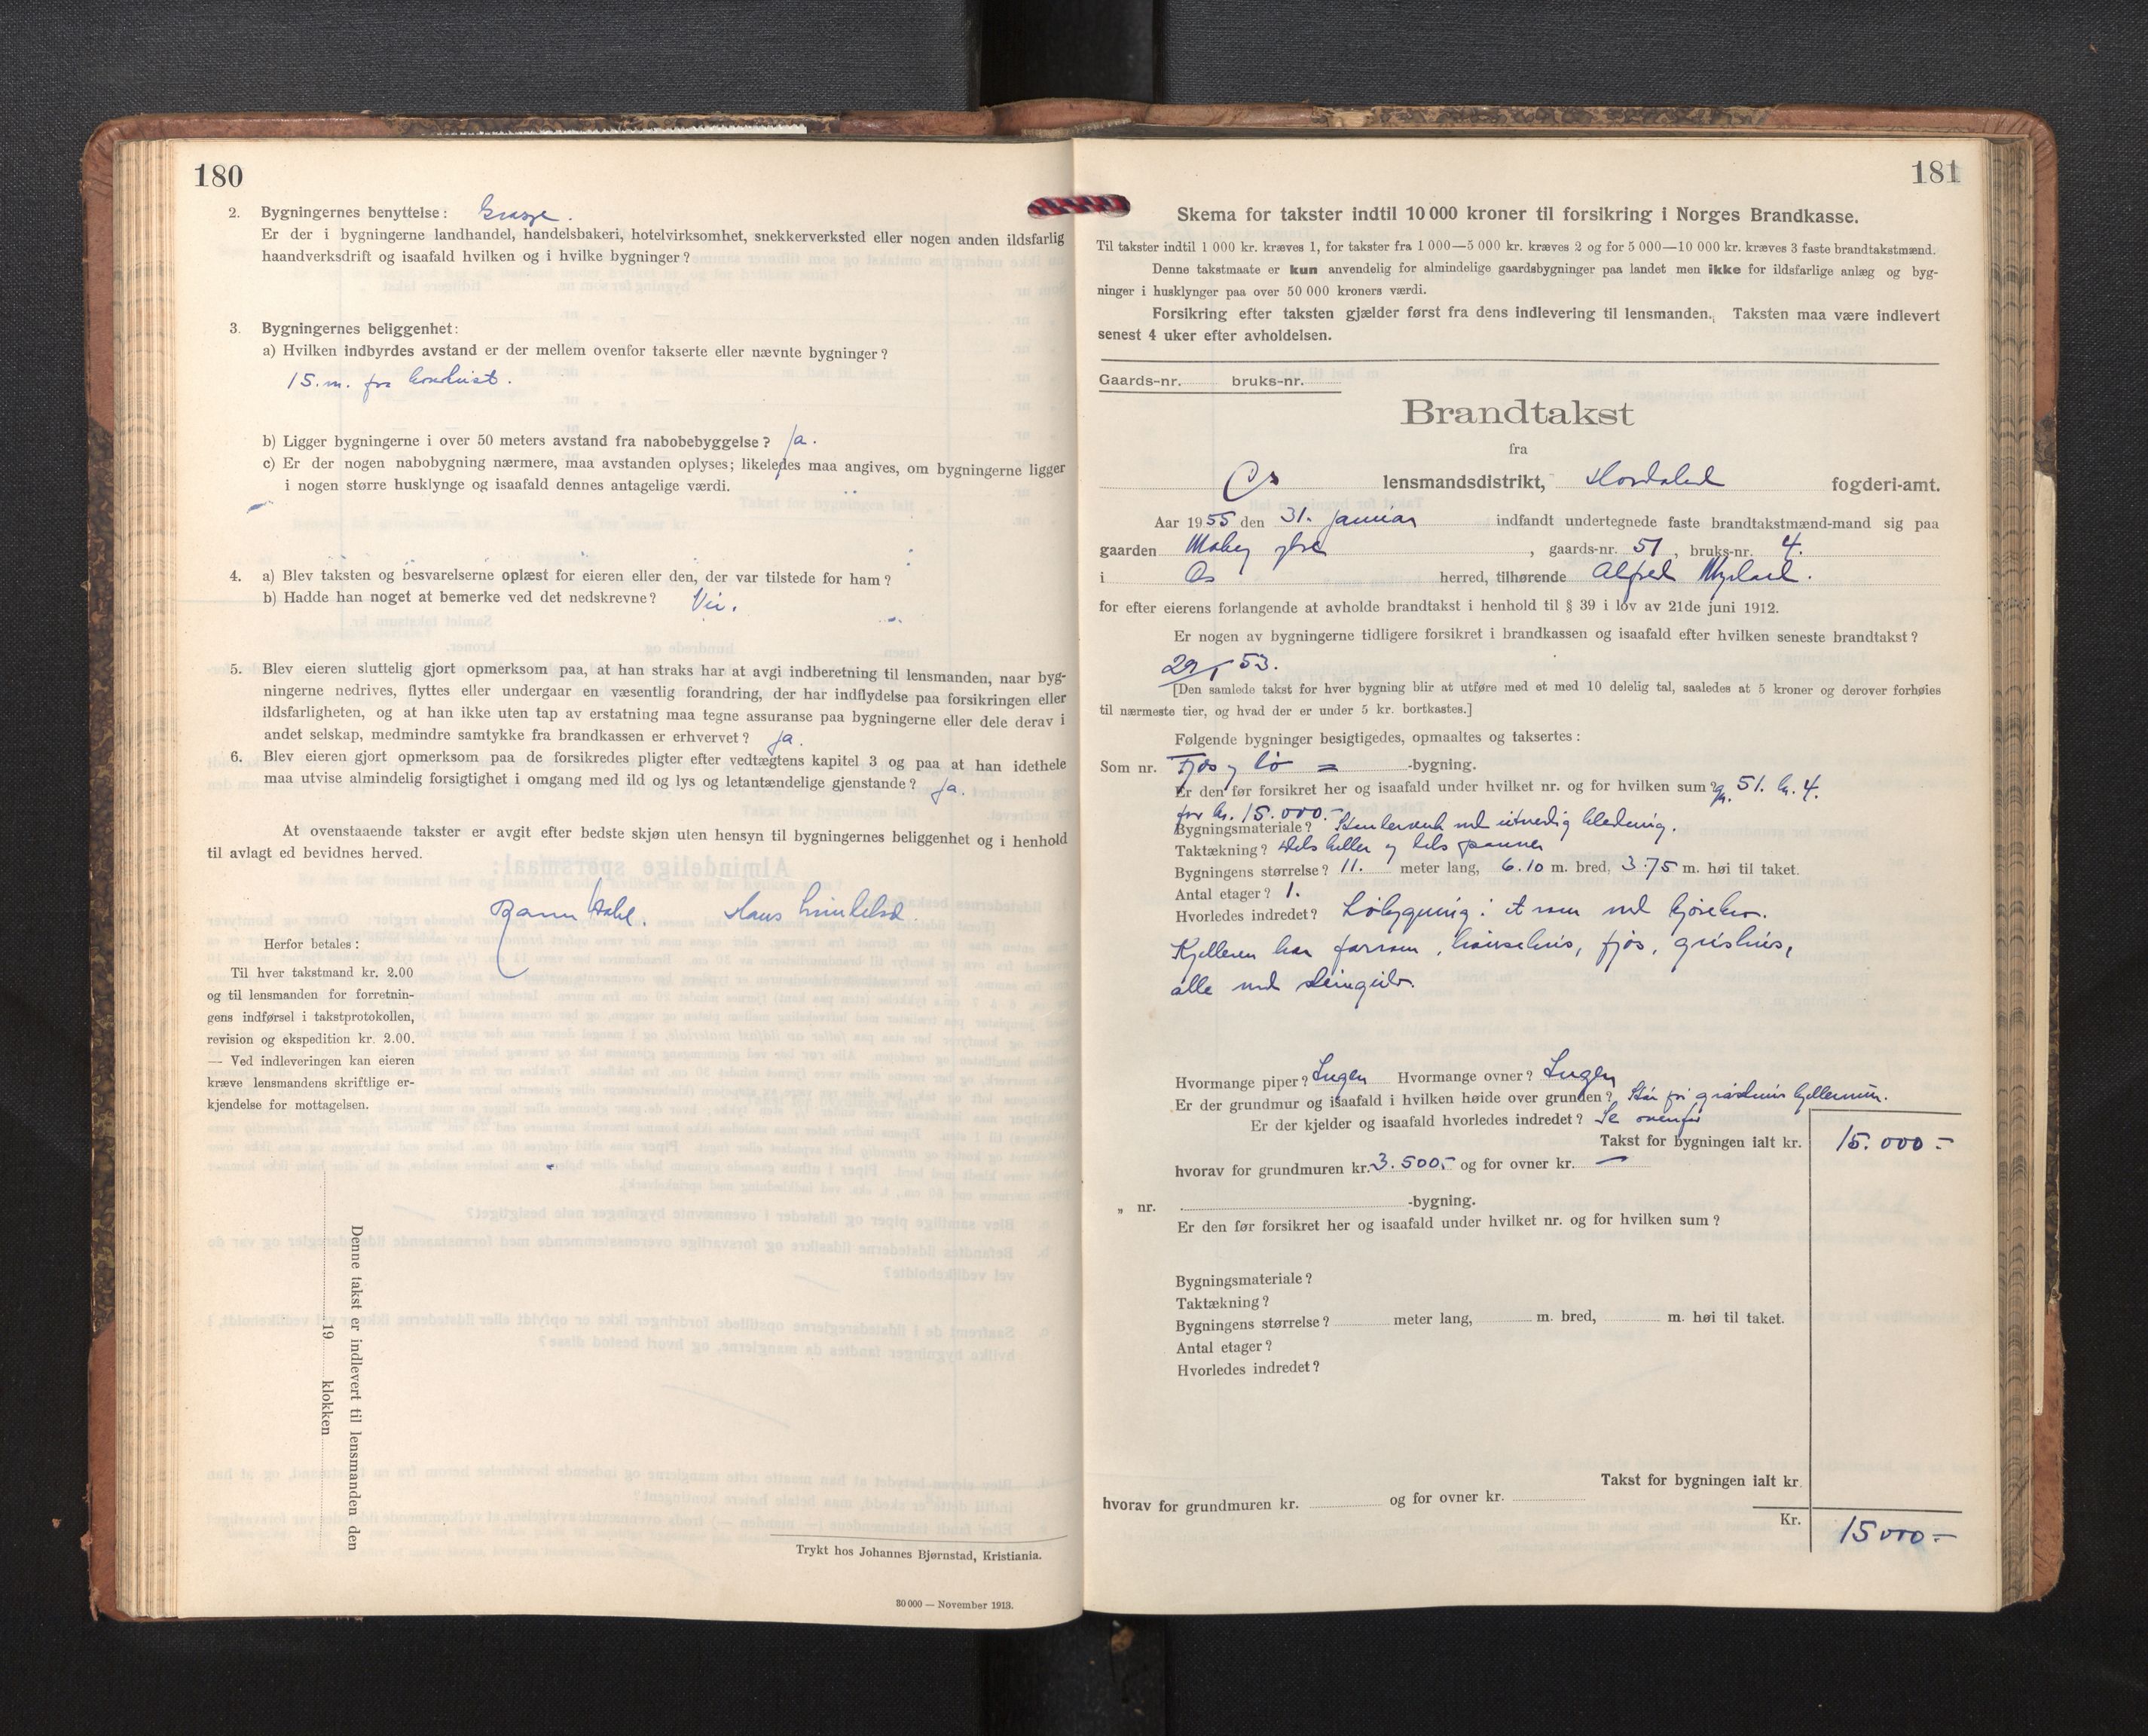 180
2. Bygningernes benyttelse:
Er der i bygningerne landhandel, handelsbakeri, hotelvirksomhet, snekkerverksted eller nogen anden ildsfarlig
haandverksdrift og isaafald hvilken og i hvilke bygninger?
3. Bygningernes beliggenhet:
a) Hvilken indbyrdes avstand er der mellem ovenfor takserte eller nævnte bygninger?
15. m. fra
b) Ligger bygningerne i over 50 meters avstand fra nabobebyggelse? Ja.
c) Er der nogen nabobygning nærmere, maa avstanden oplyses; likeledes maa angives, om bygningerne ligger
i nogen større husklynge og isaafald dennes antagelige værdi.
4. a) Blev taksten og besvarelserne oplæst for eieren eller den, der var tilstede for ham?
b) Hadde han noget at bemerke ved det nedskrevne? Nei.
5. Blev eieren sluttelig gjort opmerksom paa, at han straks har at avgi indberetning til lensmanden, naar byg-
ningerne nedrives, flyttes eller undergaar en væsentlig forandring, der har indflydelse paa forsikringen eller
ildsfarligheten, og at han ikke uten tap av erstatning maa tegne assuranse paa bygningerne eller dele derav i
andet selskap, medmindre samtykke fra brandkassen er erhvervet? Ja.
6. Blev eieren gjort opmerksom paa de forsikredes pligter efter vedtægtens kapitel 3 og paa at han idethele
maa utvise almindelig forsigtighet i omgang med ild og lys og letantændelige gjenstande? Ja.
At ovenstaaende takster er avgit efter bedste skjøn uten hensyn til bygningernes beliggenhet og i henhold
til avlagt ed bevidnes herved.
Hans
Herfor betales:
Til hver takstmand kr. 2.00
og til lensmanden for forretnin-
gens indførsel i takstprotokollen,
revision og ekspedition kr. 2.00.
— Ved indleveringen kan eieren
kræve lensmandens skriftlige er-
kjendelse for mottagelsen.
Denne takst er indlevert til lensmanden den
19 klokken
Trykt hos Johannes Bjørnstad, Kristiania.
30 000 — November 1913.
181
Skema for takster indtil 10 000 kroner til forsikring i Norges Brandkasse.
Til takster indtil 1 000 kr. kræves 1, for takster fra 1 000—5 000 kr. kræves 2 og for 5 000—10 000 kr. kræves 3 faste brandtakstmænd.
Denne takstmaate er kun anvendelig for almindelige gaardsbygninger paa landet men ikke for ildsfarlige anlæg og byg-
ninger i husklynger paa over 50 000 kroners værdi.
Forsikring efter taksten gjælder først fra dens indlevering til lensmanden. Taksten maa være indlevert
senest 4 uker efter avholdelsen.
Gaards-nr. bruks-nr.
Brandtakst
fra
Os lensmandsdistrikt, Hordaland fogderi-amt.
Aar 1955 den 31. januar indfandt undertegnede faste brandtakstmænd-mand sig paa
gaarden , gaards-nr. 51, bruks-nr. 4.
i Os herred, tilhørende Alfred
for efter eierens forlangende at avholde brandtakst i henhold til § 39 i lov av 21de juni 1912.
Er nogen av bygningerne tidligere forsikret i brandkassen og isaafald efter hvilken seneste brandtakst?
53.
[Den samlede takst for hver bygning blir at utføre med et med 10 delelig tal, saaledes at 5 kroner og derover forhøies
til nærmeste tier, og hvad der er under 5 kr. bortkastes.]
Følgende bygninger besigtigedes, opmaaltes og taksertes:
Som nr. Fjøs og lø = -bygning.
Er den før forsikret her og isaafald under hvilket nr. og for hvilken sum? 51. 4.
for kr. 15.000.-
Bygningsmateriale? Stenderverk med utvendig kledning.
Taktækning? Dels heller og dels panner
Bygningens størrelse? 11. meter lang, 6.10 m. bred, 3.75 m. høi til taket.
Antal etager? 1.
Hvorledes indredet? Løbygning: et rom med kjørebro.
Kjelleren har forrom, hønsehus, fjøs, grishus,
alle med
Hvormange piper? Ingen Hvormange ovner? Ingen
Er der grundmur og isaafald i hvilken høide over grunden? Står på gråsteins kjellermur.
Er der kjelder og isaafald hvorledes indredet? Se ovenfor
Takst for bygningen ialt kr. 15.000.-
hvorav for grundmuren kr. 3.500.- og for ovner kr. —
„ nr. -bygning.
Er den før forsikret her og isaafald under hvilket nr. og for hvilken sum?
Bygningsmateriale?
Taktækning?
Bygningens størrelse? meter lang, m. bred, m. høi til taket.
Antal etager?
Hvorledes indredet?
Takst for bygningen ialt kr.
hvorav for grundmuren kr. og for ovner kr.
Kr. 15000.-